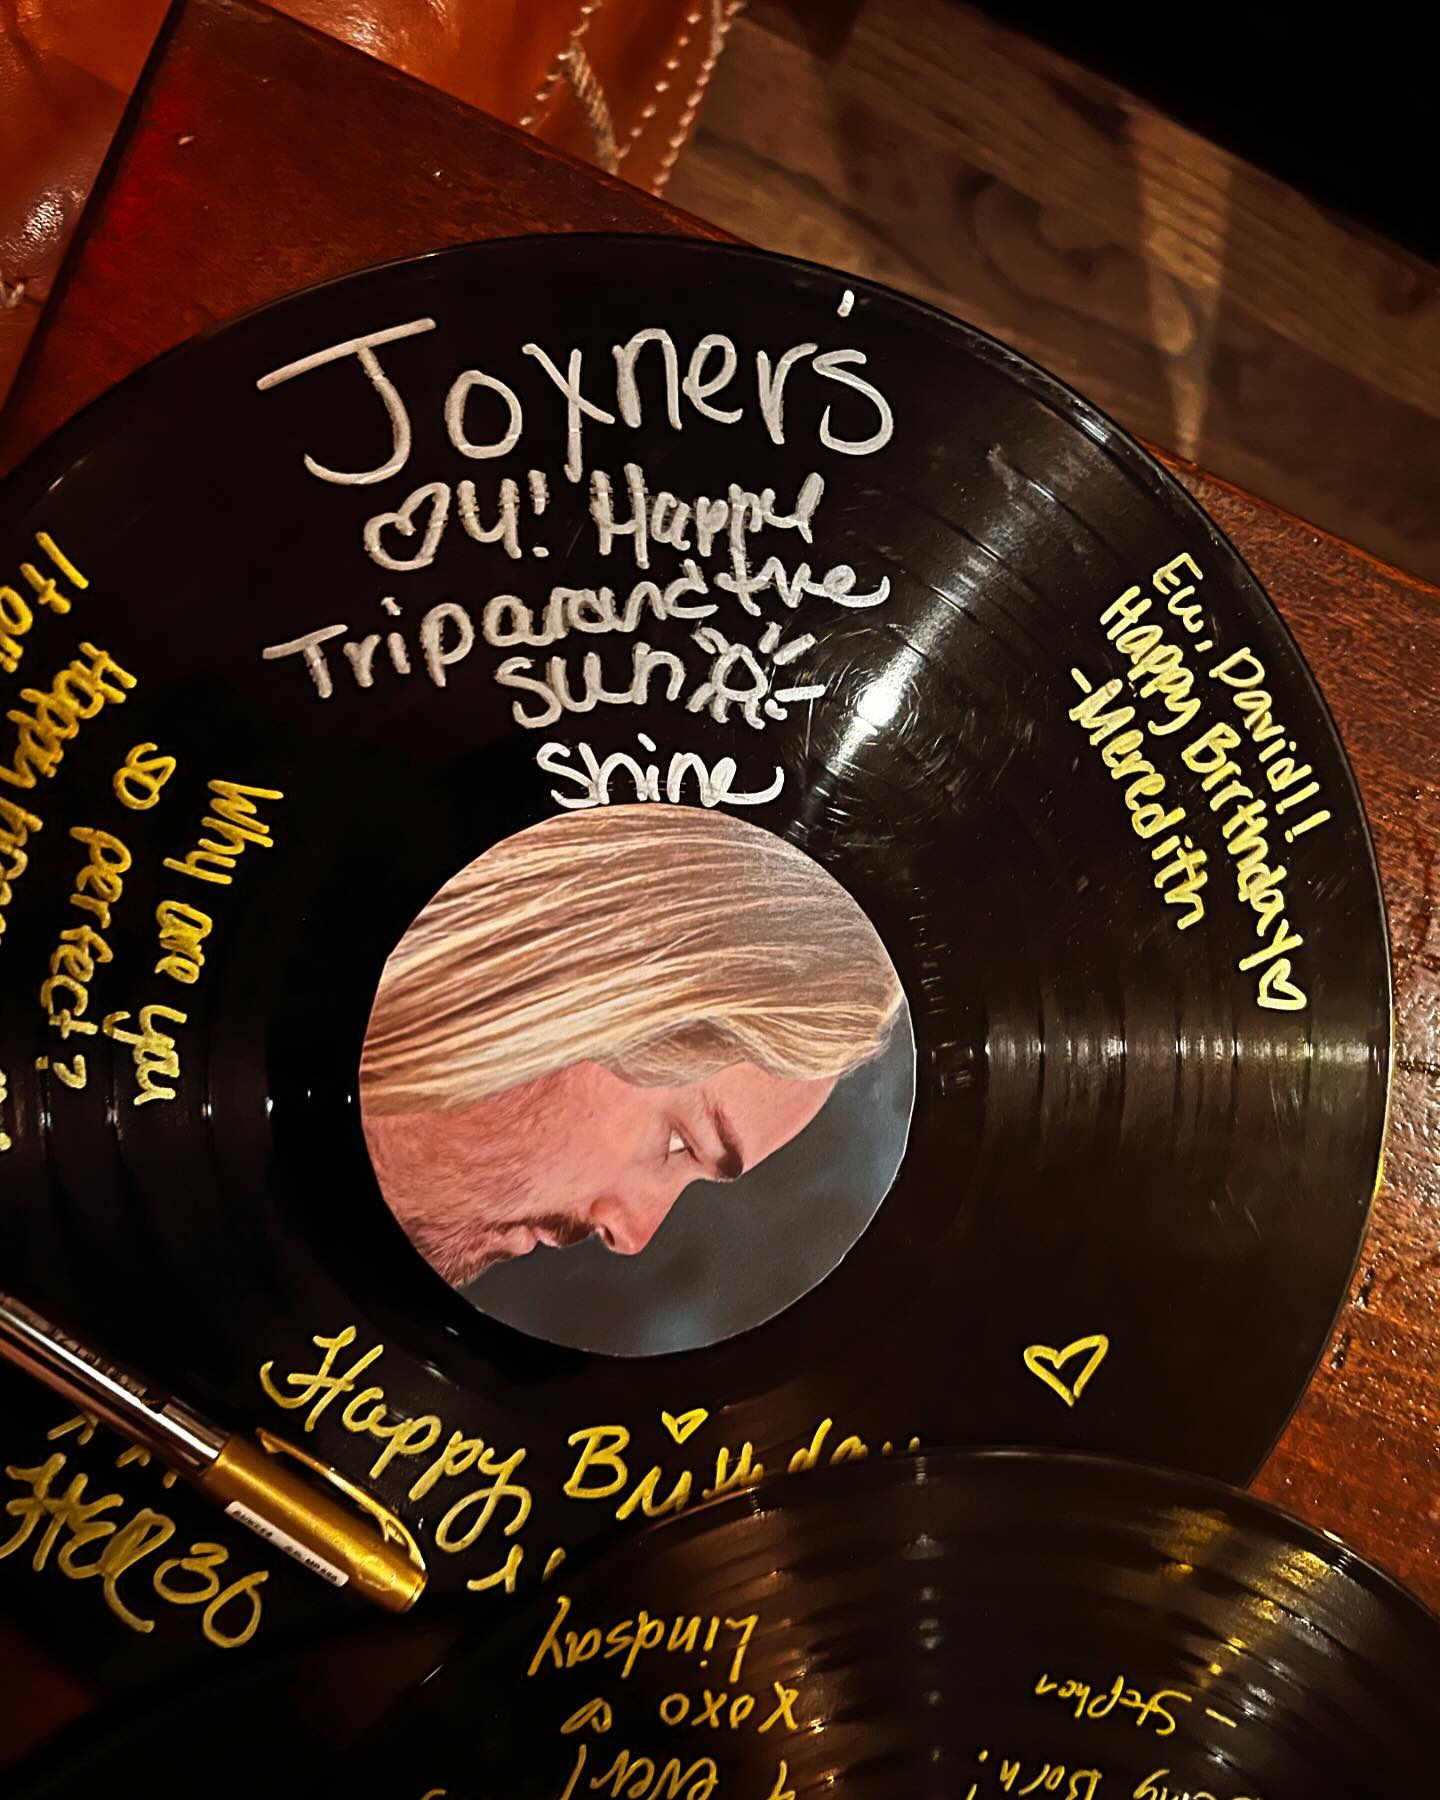 Joyner's
♡ U! Happy
Trip around the
sun
shine
Ew, David!!
Happy Birthday ♡
-Meredith
Why are you
so perfect?
Happy
Happy Birthday
HER 30
Lindsay
xoxo
ever!
- Stephen
Born!